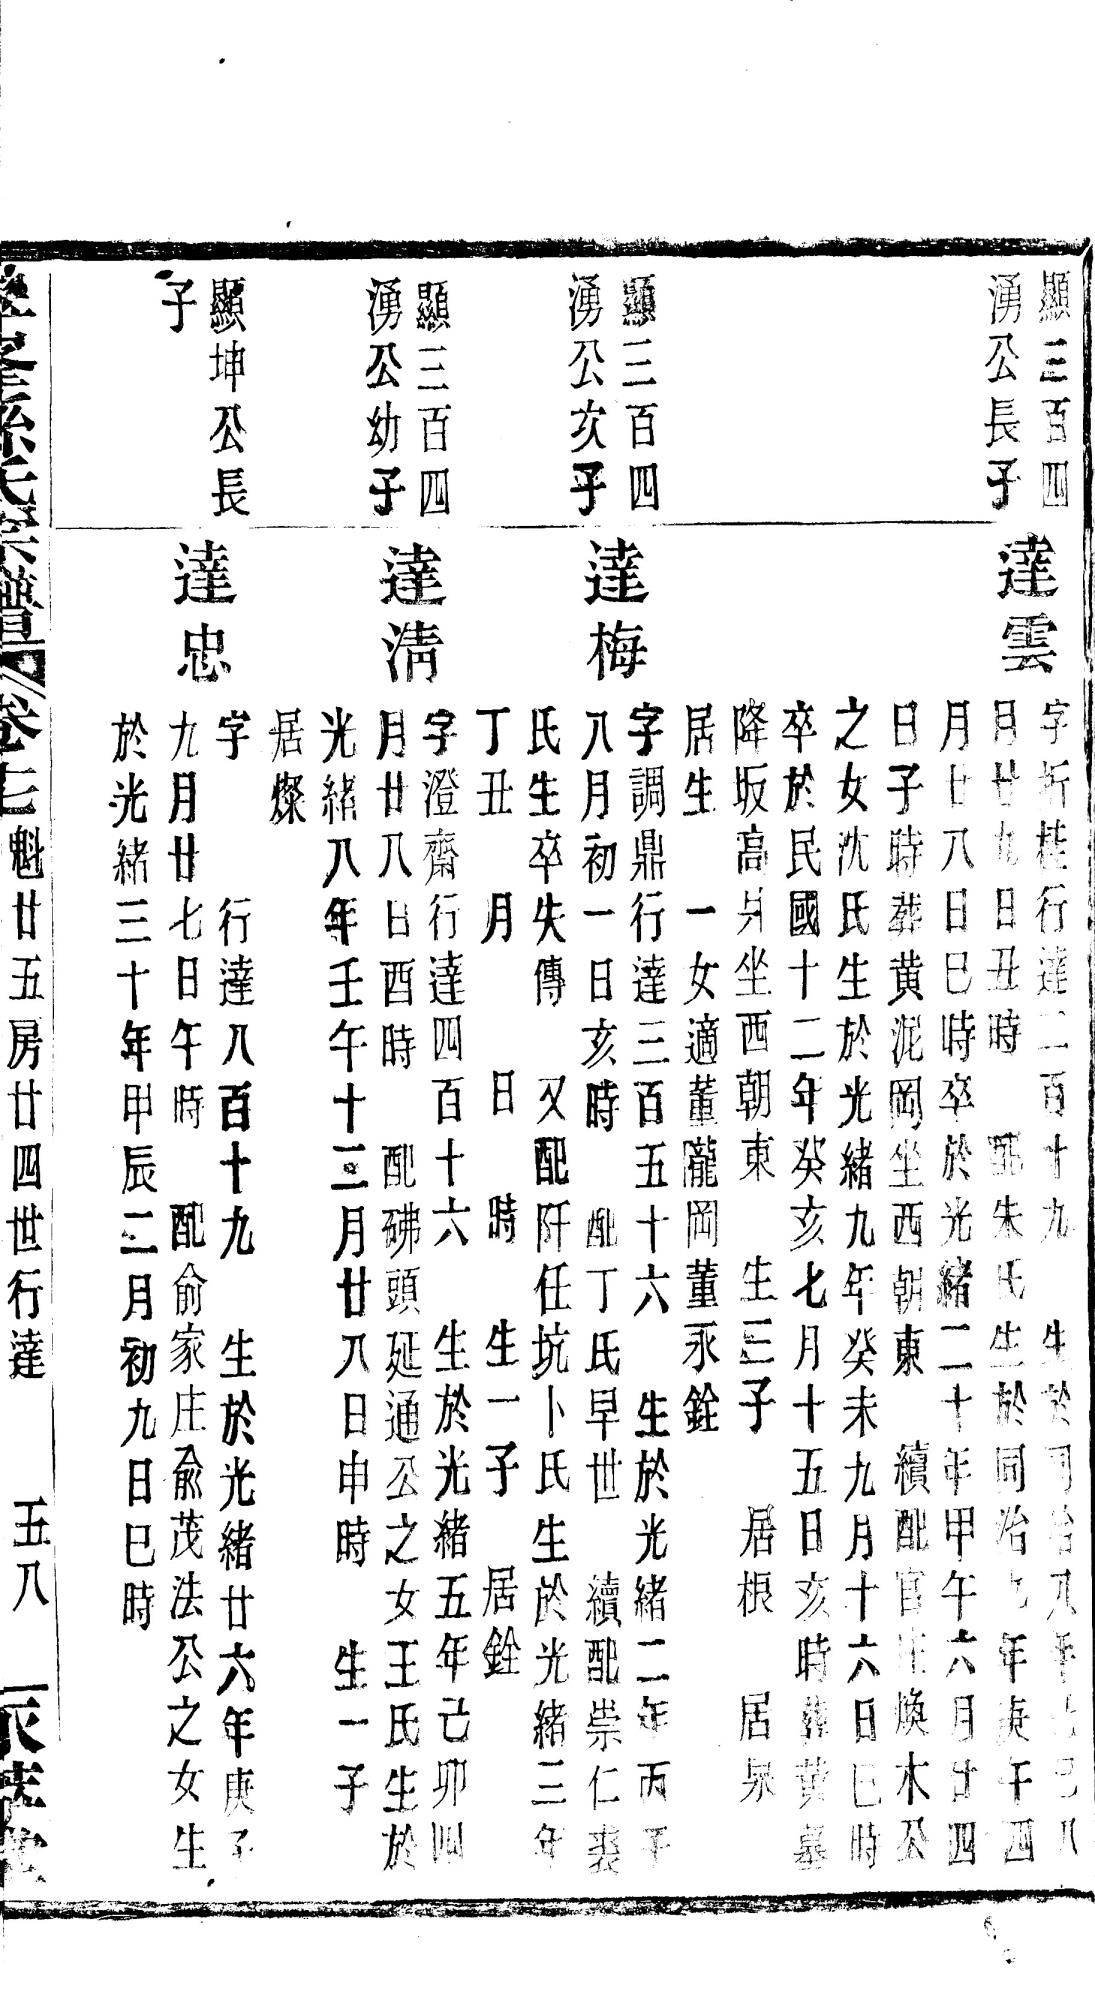 顯三百四
湧公長子
達雲
字折桂行達二百十九　生於同治八年己巳八
月廿九日丑時　配朱氏生於同治九年庚午四
月廿八日巳時卒於光緒二十年甲午六月廿四
日子時葬黄泥岡坐西朝東　續配官庄煥木公
之女沈氏生於光緒九年癸未九月十六日巳時
卒於民國十二年癸亥七月十五日亥時葬黄墓
降坂高爿坐西朝東　生三子　居根　居泉
居生　一女適董隴岡董永銓
顯三百四
湧公次子
達梅
字調鼎行達三百五十六　生於光緒二年丙子
八月初一日亥時　配丁氏早世　續配崇仁裘
氏生卒失傳　又配阡任坑卜氏生於光緒三年
丁丑　月　日　時　生一子　居銓
顯三百四
湧公幼子
達清
字澄齋行達四百十六　生於光緒五年己卯四
月廿八日酉時　配砩頭延通公之女王氏生於
光緒八年壬午十二月廿八日申時　生一子
居燦
顯坤公長
子
達忠
字　行達八百十九　生於光緒廿六年庚子
九月廿七日午時　配俞家庄俞茂法公之女生
於光緒三十年甲辰二月初九日巳時
孫氏宗譜　卷七　魁廿五房廿四世行達　五八